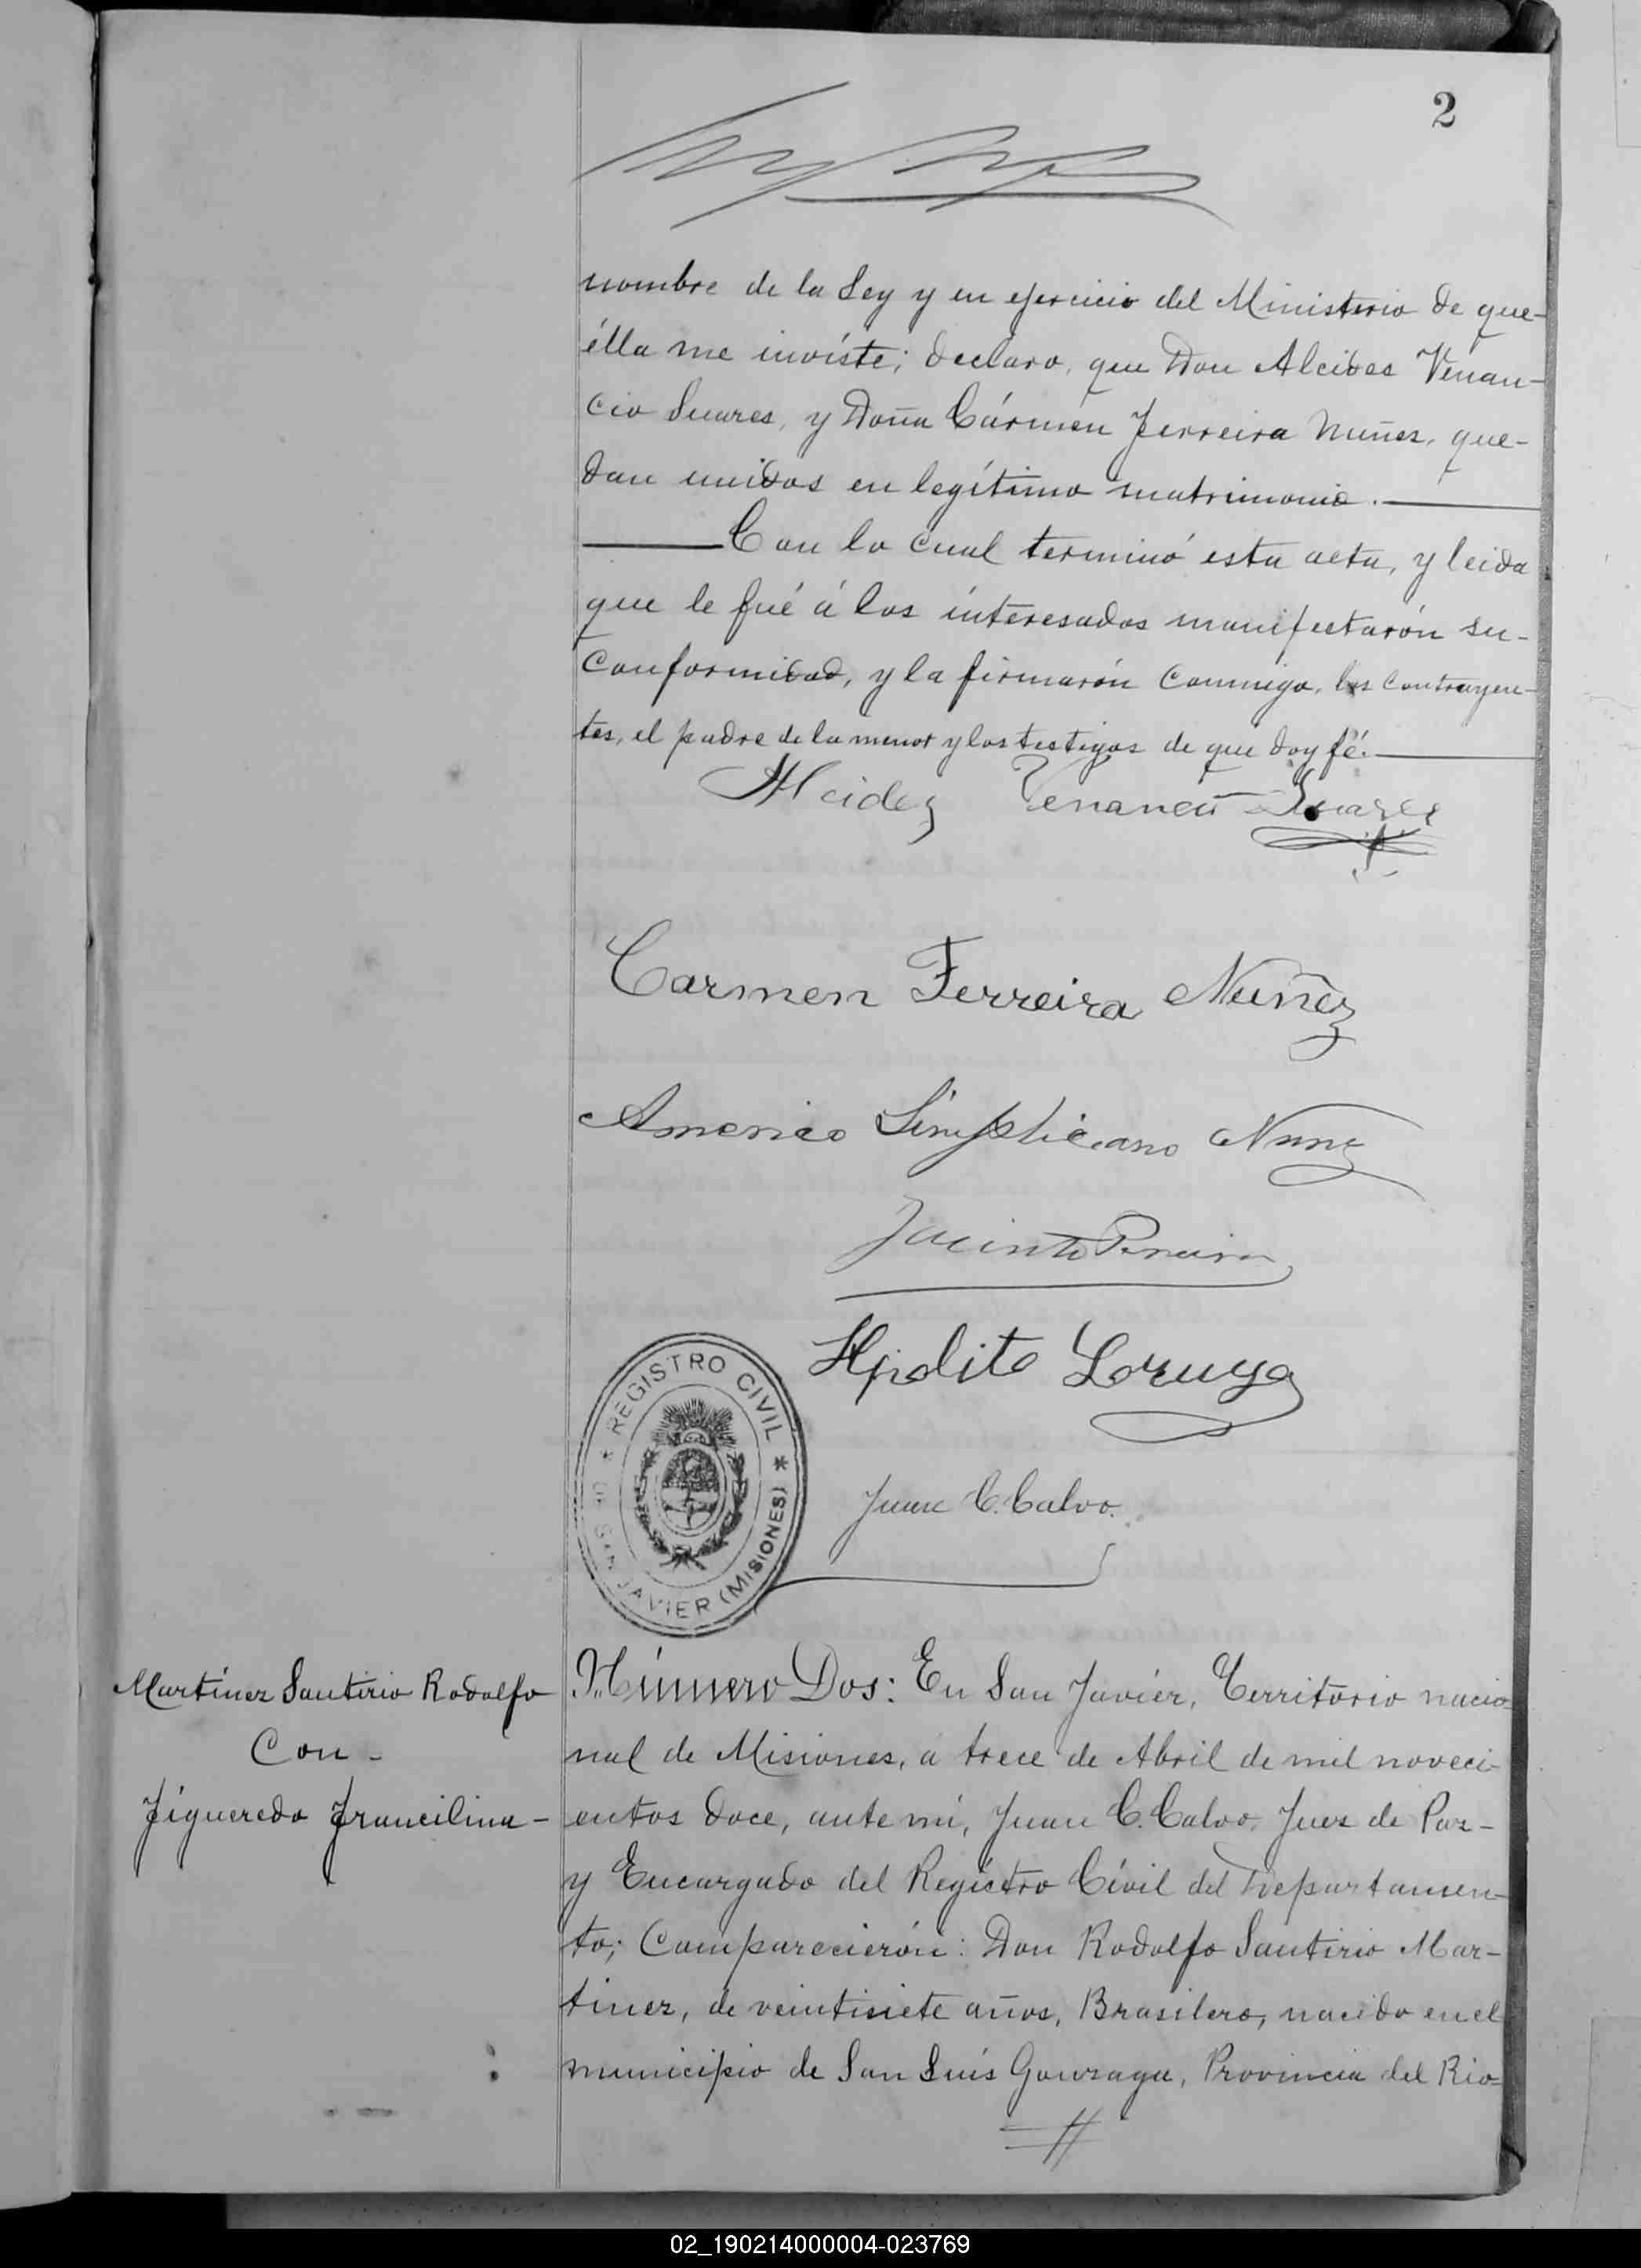 2
nombre de la Ley y en ejercicio del Ministerio de que-
élla me inviste; declaro, que Don Alcides Venan-
cio Suares, y Doña Cármen Ferreira Nuñes, que-
dan unidos en legítimo matrimonio.
Con lo cual terminó esta acta, y leida
que le fué á los interesados manifestarón su-
conformidad, y la firmarón conmigo, los contrayen-
tes, el padre de la menor y los testigos de que doy fé.
Alcides Venancio Suares
Carmen Ferreira Nuñez
Americo Simpliciano Nunz
Jacinto Pereira
Hipolito Loruyo
REGISTRO CIVIL
DE SAN JAVIER (MISIONES)
Juan C. Calvo.
Martínez Santirio Rodolfo
Con -
Figueredo Francilina -
Número Dos: En San Javiér, Territorio nacio-
nal de Misiones, á trece de Abril de mil noveci-
entos doce, ante mí, Juan C. Calvo, Juez de Paz -
y Encargado del Registro Cívil del Departamen-
to; Comparecierón: Don Rodolfo Santirio Mar-
tinez, de veintisiete años, Brasilero, nacido en el
municipio de San Luís Gonzaga, Provincia del Rio-
02_190214000004-023769